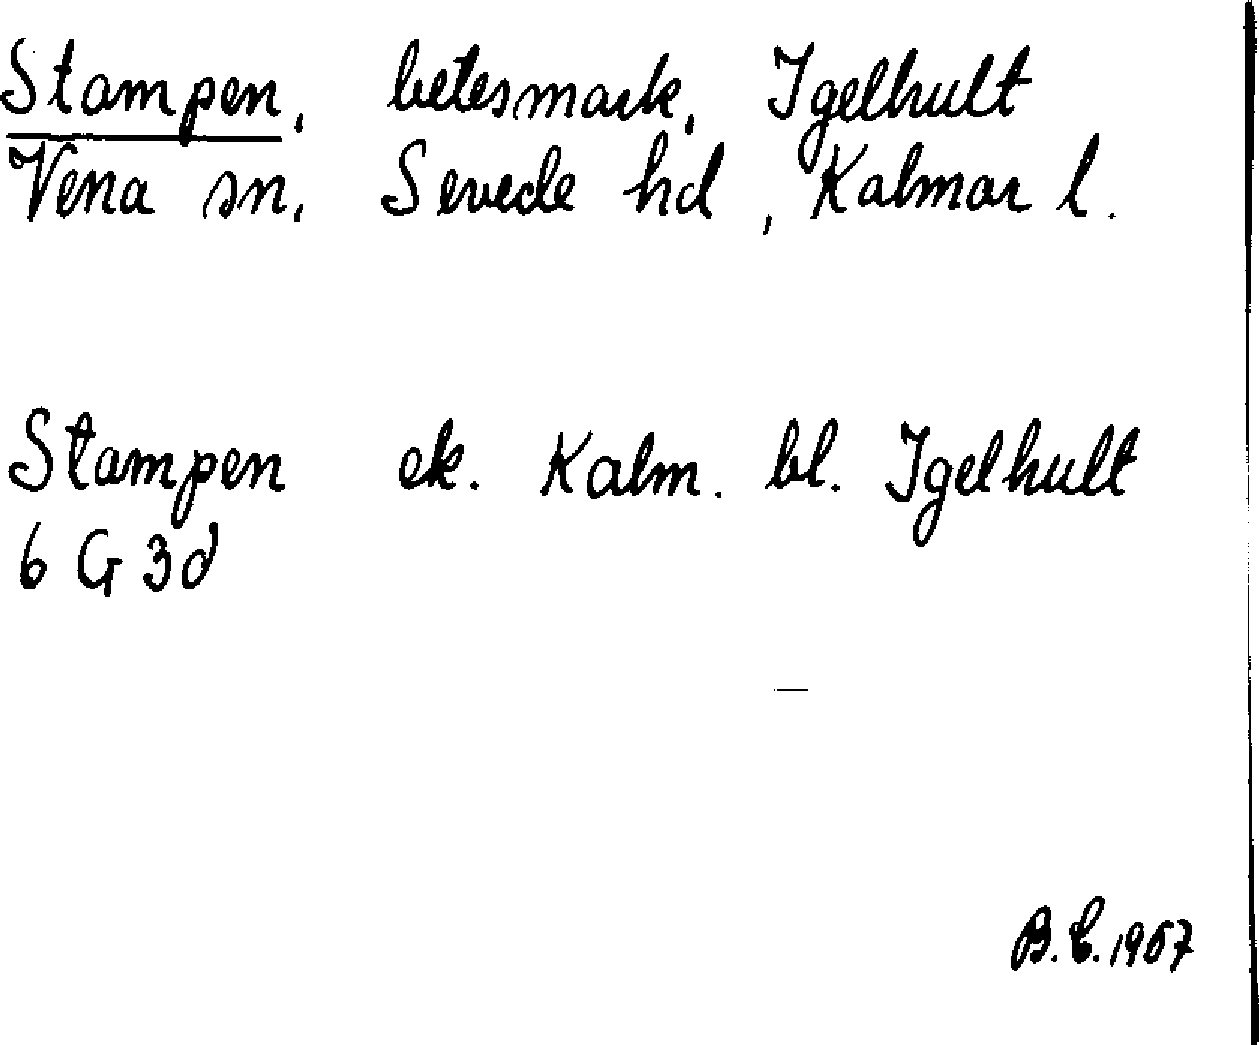 Stampen, betesmark, Igelhult
Vena sn, Sevede hd, Kalmar l.
Stampen ek. Kalm. bl. Igelhult
6 G 3d